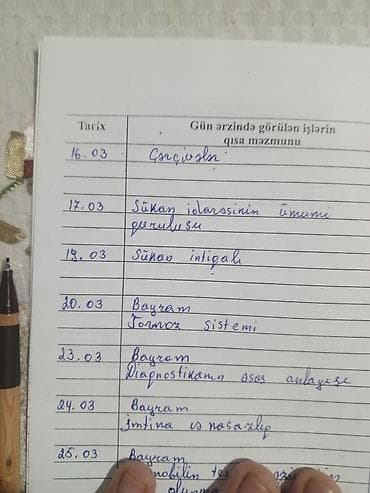 Tarix Gün ərzində görülən işlərin
qısa məzmunu
16.03 Çərçivələr
17.03 Sükan idarəsinin ümumi
quruluşu
19.03 Sükan intiqalı
20.03 Bayram
Tormoz sistemi
23.03 Bayram
Diaqnostikanın əsas anlayışı
24.03 Bayram
İmtina və nasazlıq
25.03 Bayram